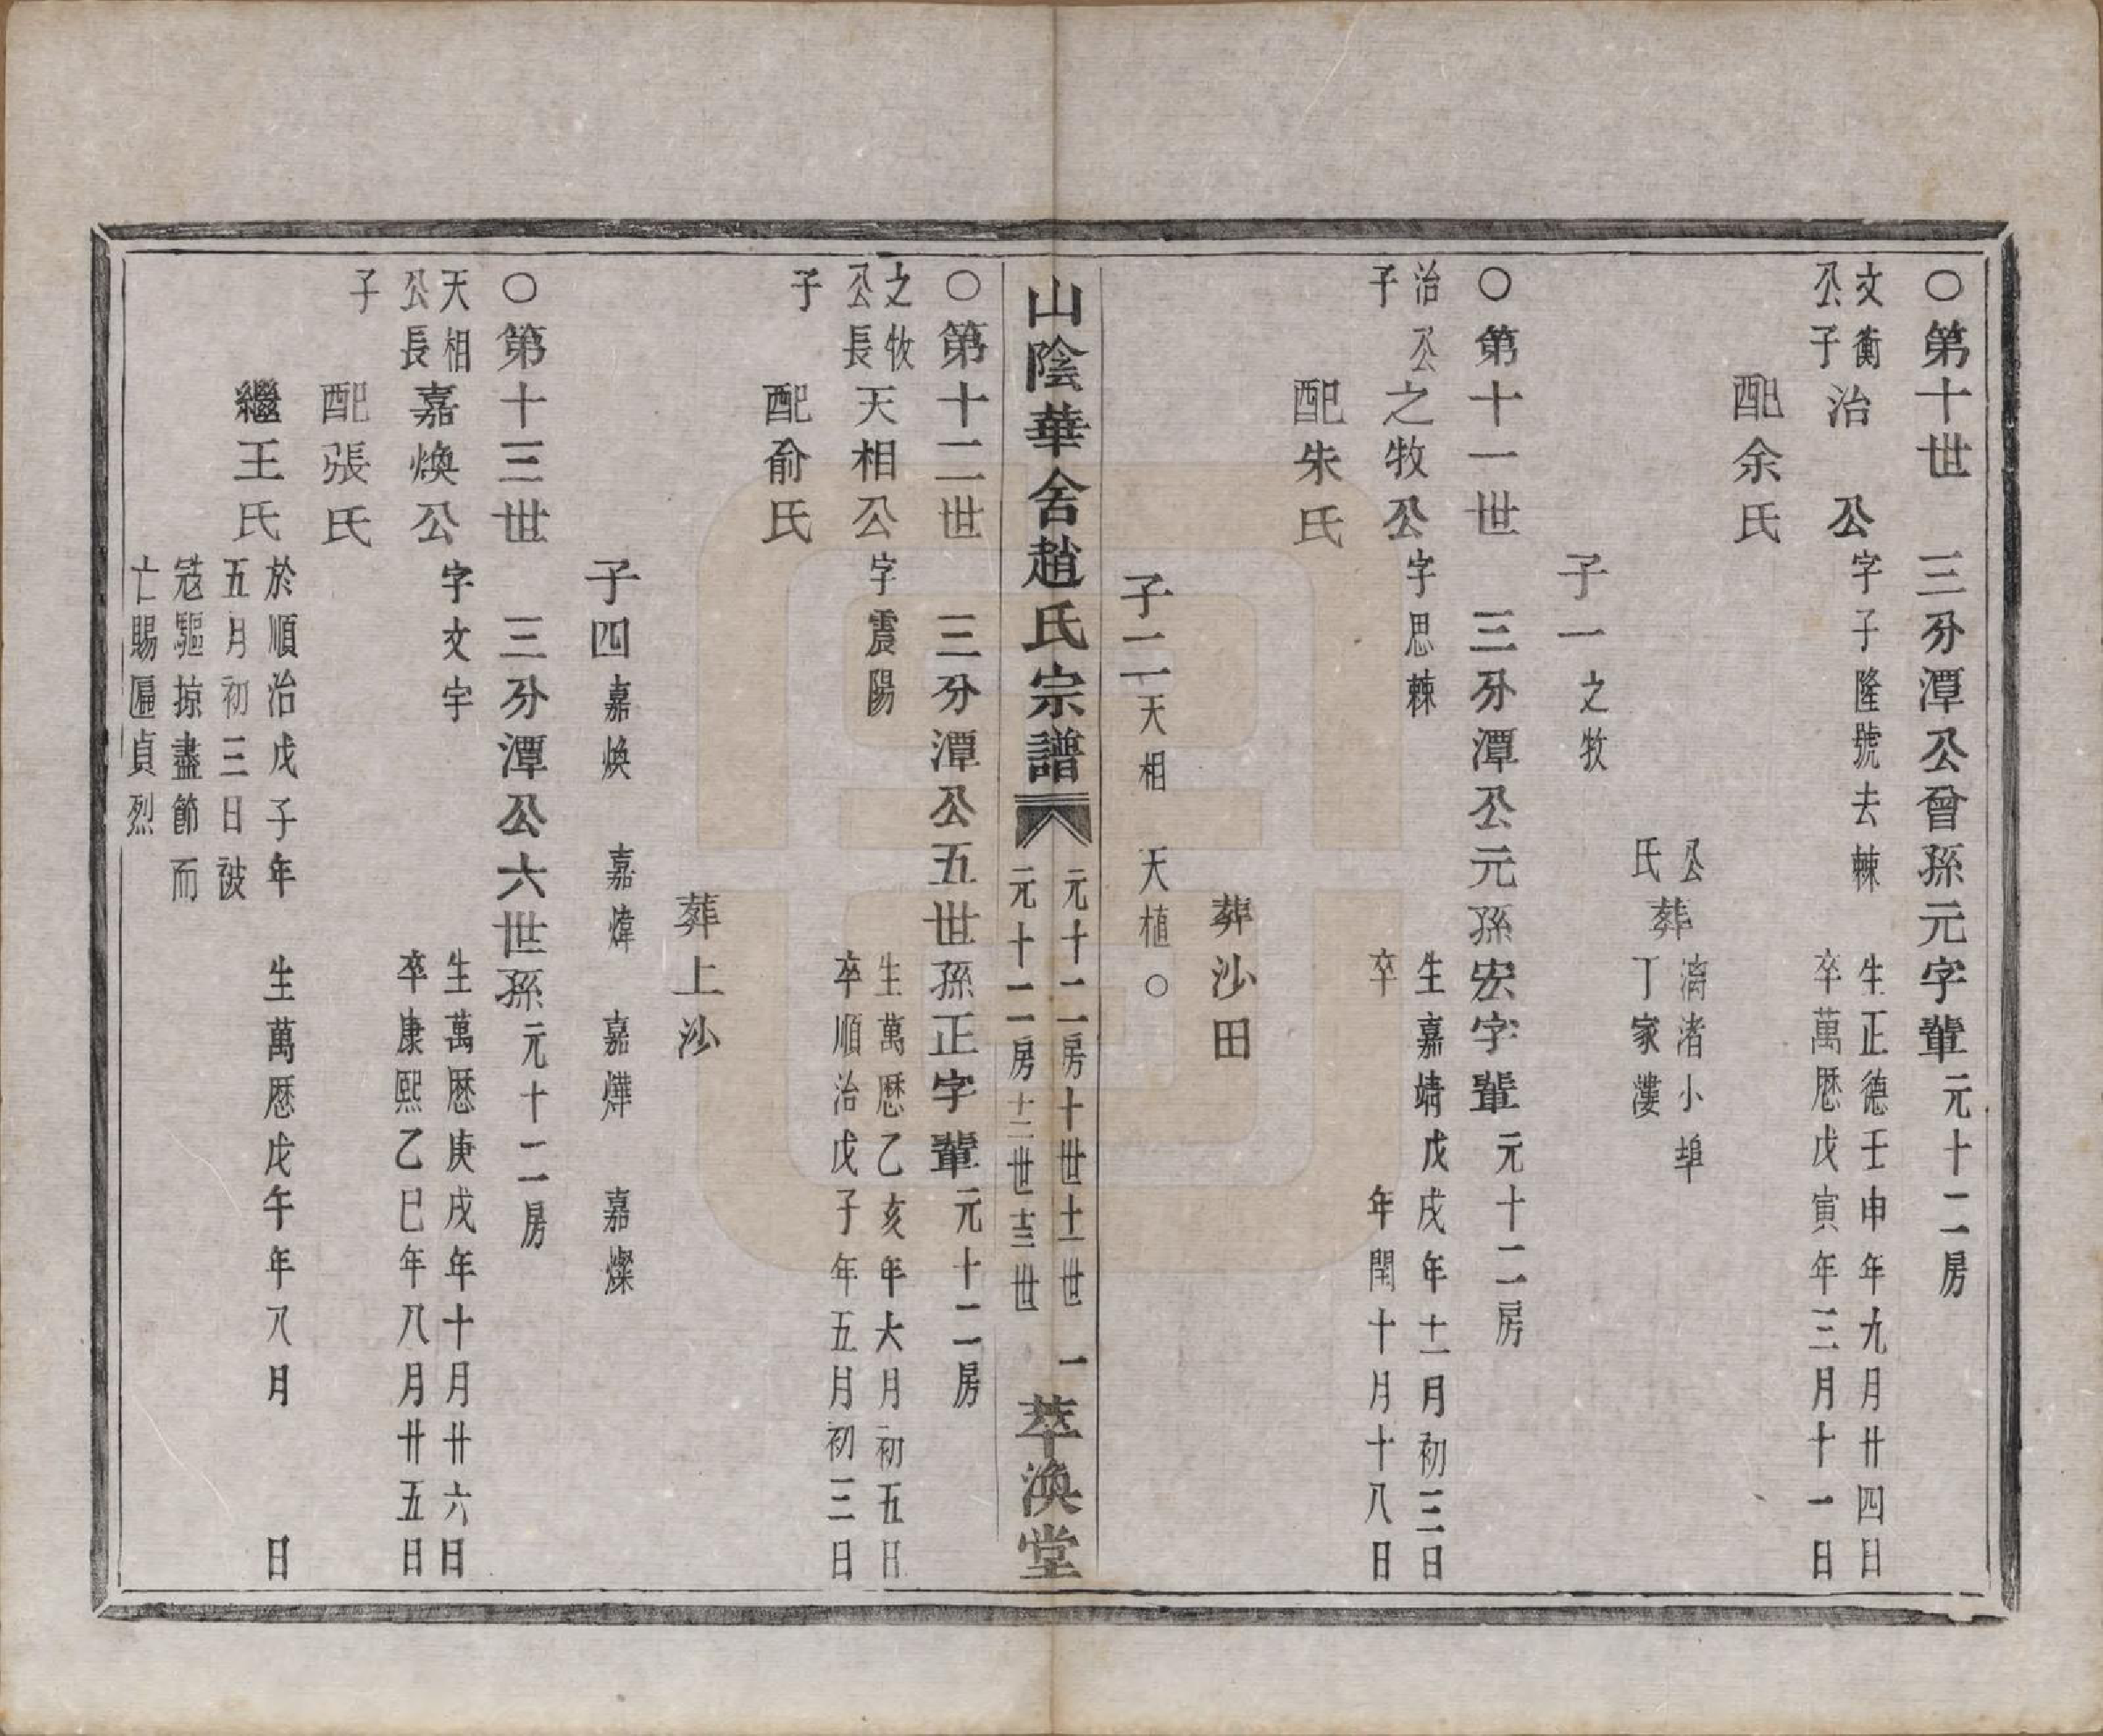 ○第十世　三分潭公曾孫元字輩元十二房
文衡
公子
治　公
字子隆號去棘
生正德壬申年九月廿四日
卒萬厯戊寅年三月十一日
配余氏
公
氏
葬
漓渚小埠
丁家漊
子一之牧
○第十一世　三分潭公元孫宏字輩元十二房
治公
子
之牧公
字思棘
生嘉靖戊戌年十一月初三日
卒　年閏十月十八日
配朱氏
葬沙田
子二天相　天植○
山陰華舍趙氏宗譜
元十二房十世十一世　一
元十二房十二世十三世
萃渙堂
○第十二世　三分潭公五世孫正字輩元十二房
之牧
公長
子
天相公
字震陽
生萬厯乙亥年六月初五日
卒順治戊子年五月初三日
配俞氏
葬上沙
子四嘉煥　嘉煒　嘉燁　嘉燦
○第十三世　三分潭公六世孫元十二房
天相
公長
子
嘉煥公
字文宇
生萬厯庚戌年十月廿六日
卒康熙乙巳年八月廿五日
配張氏
繼王氏
於順治戊子年
五月初三日被
冦驅掠盡節而
亡賜匾貞烈
生萬厯戊午年八月　日